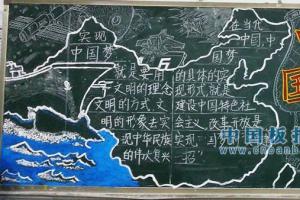 实现
中国梦
就是要用
文明的理念
文明的方式,文
明的形象去实
现中华民族
的伟大复兴
在当代
中国,中
国梦
的具体的实
现形式,就是
建设中国特色社
会主义,改革开放是
实现
招"
国
中国板报
www.cnbanb